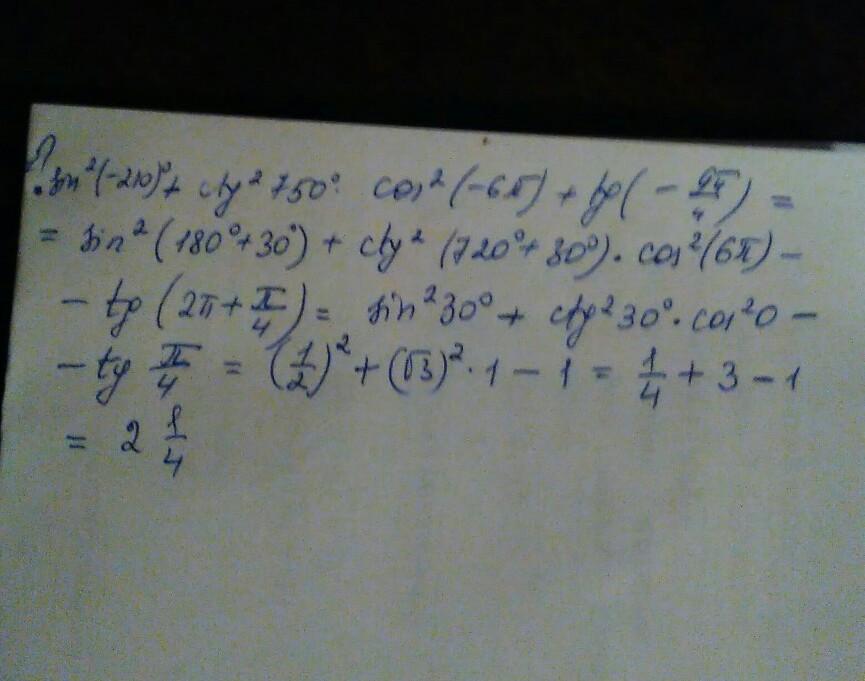 sin²(-210)° + ctg² 750° cos²(-6π) + tg(-9π/4) =
= sin²(180°+30°) + ctg² (720°+30°)·cos²(6π) -
- tg (2π+π/4) = sin²30° + ctg²30°·cos²0 -
- tg π/4 = (1/2)² + (√3)²·1 - 1 = 1/4 + 3 - 1
= 2 1/4